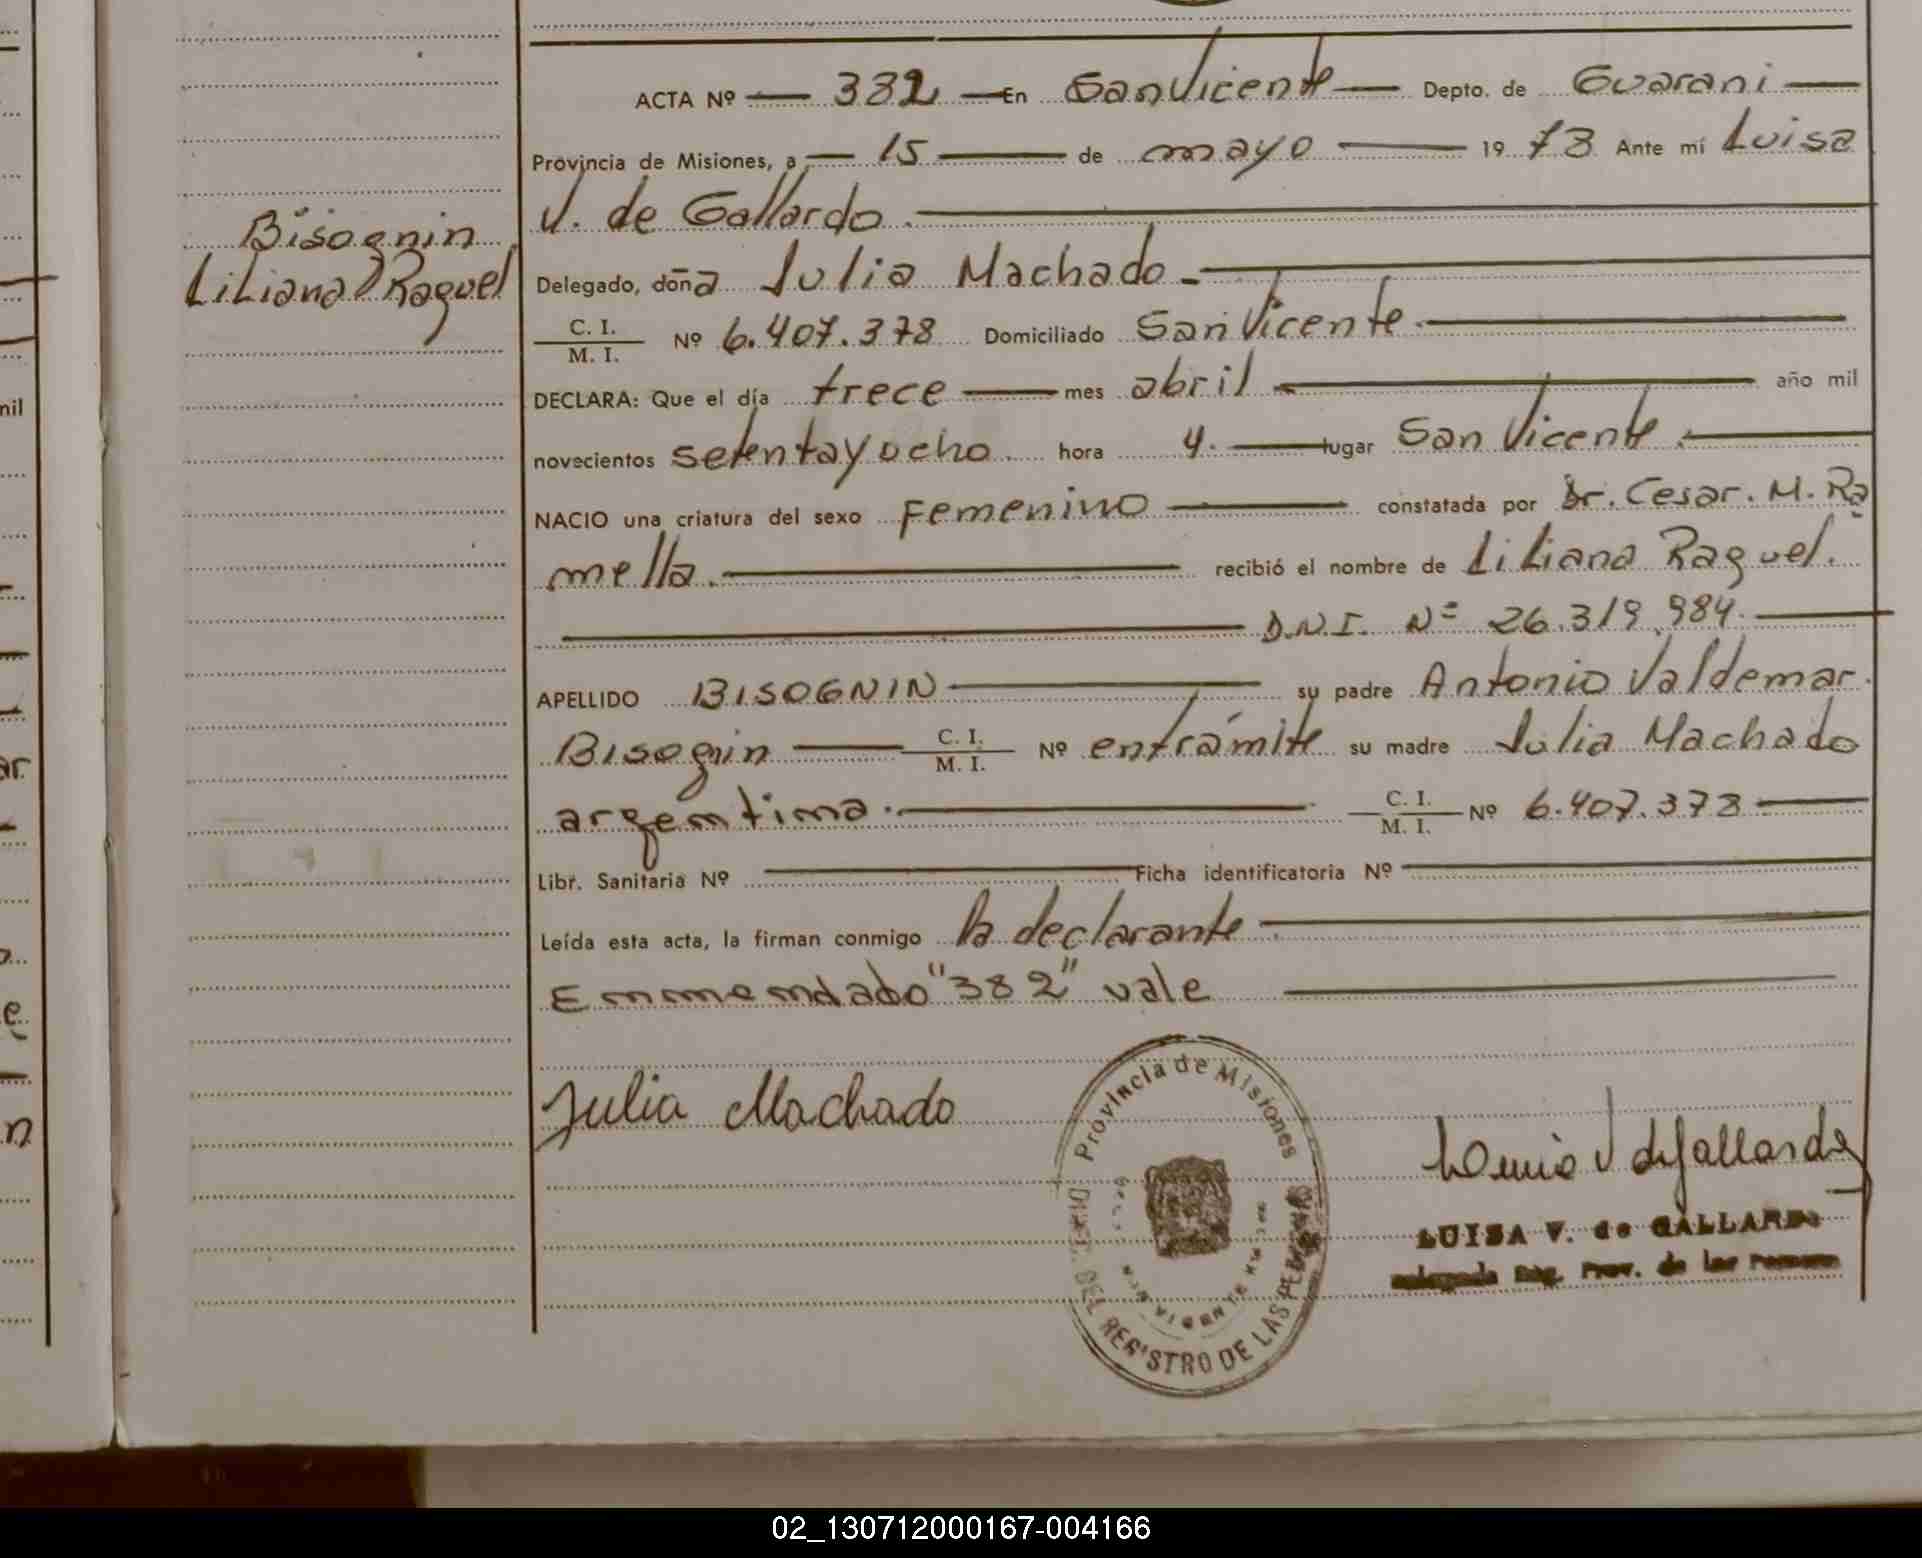 ACTA Nº — 382 — En San Vicente — Depto. de Guarani —
Provincia de Misiones, a — 15 — de mayo — 19 78 Ante mí Luisa
V. de Gallardo.
Bisognin
Liliana Raquel
Delegado, doña Julia Machado
C. I.
M. I.
Nº 6.407.378 Domiciliado San Vicente.
DECLARA: Que el día trece — mes abril — año mil
novecientos setenta y ocho. hora 4. — lugar San Vicente.
NACIO una criatura del sexo Femenino — constatada por Dr. Cesar. M. Ra
mella. — recibió el nombre de Liliana Raquel.
D.N.I. Nº 26.319.984.
APELLIDO BISOGNIN — su padre Antonio Valdemar.
Bisognin — C. I.
M. I.
Nº en trámite su madre Julia Machado
argentina. — C. I.
M. I.
Nº 6.407.378
Libr. Sanitaria Nº — Ficha identificatoria Nº
Leída esta acta, la firman conmigo la declarante
Enmendado "382" vale
Julia Machado
Provincia de Misiones
DIREC. DEL REGISTRO DE LAS PERSONAS
SAN VICENTE
Luisa V de Gallardo
LUISA V. de GALLARDO
Delegada Reg. Prov. de las Personas
02_130712000167-004166